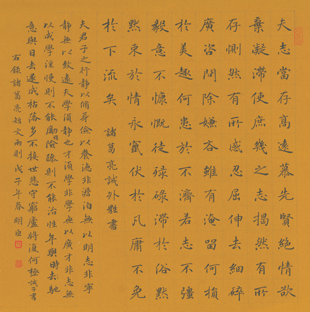 夫志當存高遠慕先賢絕情欲
棄凝滯使庶幾之志揭然有所
存惻然有所感忍屈伸去細碎
廣咨問除嫌吝雖有淹留何損
於美趣何患於不濟若志不強
毅意不慷慨徒碌碌滯於俗默
默束於情永竄伏於凡庸不免
於下流矣 諸葛亮誡外甥書
夫君子之行靜以修身儉以養德非澹泊無以明志非寧
靜無以致遠夫學須靜也才須學非學無以廣才非志無
以成學慢則不能勵精險躁則不能治性年與時去馳
意與日去遂成枯落多不接世悲守窮廬將復何及誡子書
右錄諸葛亮短文兩則戊子年春明